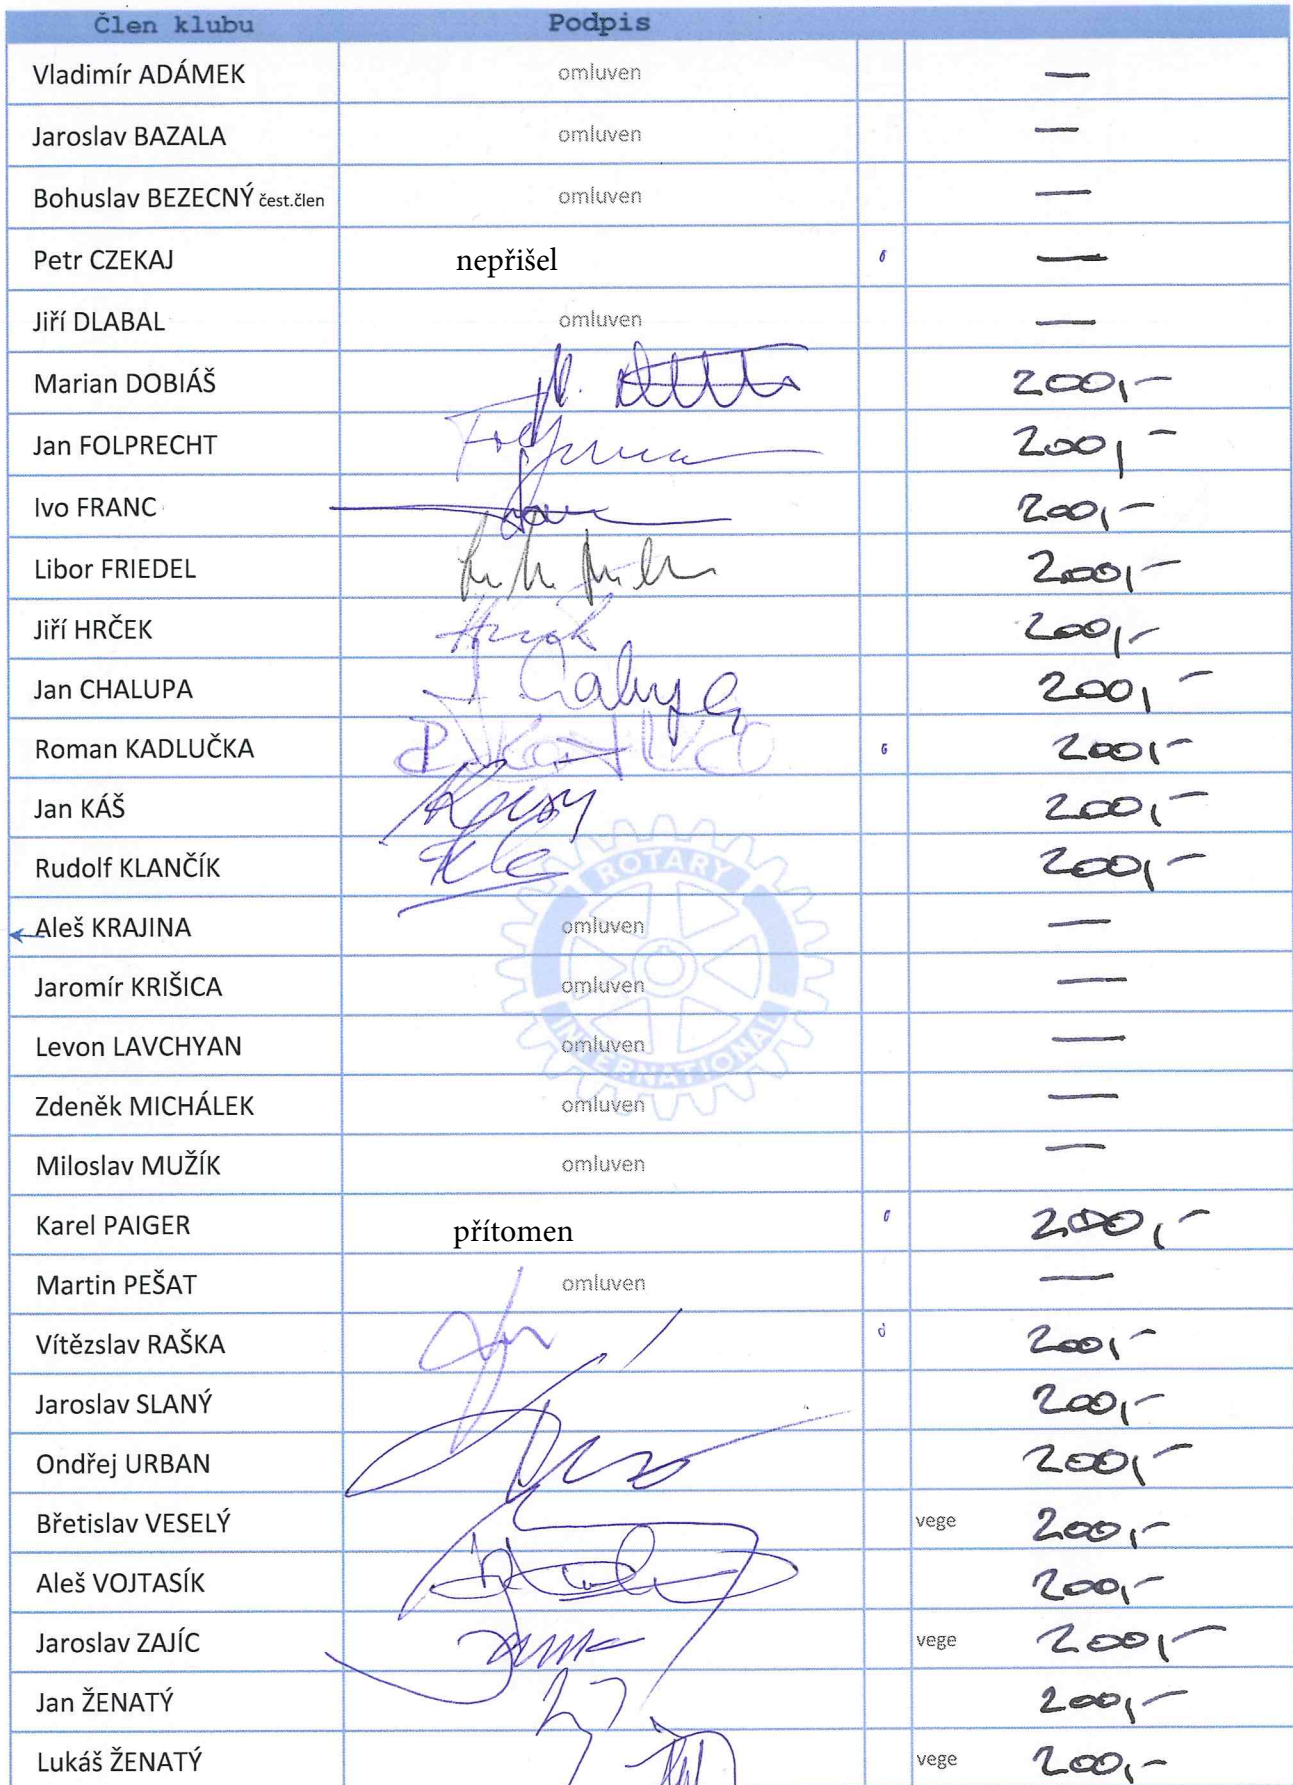 Člen klubu Podpis
Vladimír ADÁMEK omluven —
Jaroslav BAZALA omluven —
Bohuslav BEZECNÝ čest.člen omluven —
Petr CZEKAJ nepřišel —
Jiří DLABAL omluven —
Marian DOBIÁŠ 200,-
Jan FOLPRECHT 200,-
Ivo FRANC 200,-
Libor FRIEDEL 200,-
Jiří HRČEK 200,-
Jan CHALUPA 200,-
Roman KADLUČKA 200,-
Jan KÁŠ 200,-
Rudolf KLANČÍK 200,-
ROTARY
Aleš KRAJINA omluven —
Jaromír KRIŠICA omluven —
Levon LAVCHYAN omluven —
INTERNATIONAL
Zdeněk MICHÁLEK omluven —
Miloslav MUŽÍK omluven —
Karel PAIGER přítomen 200,-
Martin PEŠAT omluven —
Vítězslav RAŠKA 200,-
Jaroslav SLANÝ 200,-
Ondřej URBAN 200,-
Břetislav VESELÝ vege 200,-
Aleš VOJTASÍK 200,-
Jaroslav ZAJÍC vege 200,-
Jan ŽENATÝ 200,-
Lukáš ŽENATÝ vege 200,-